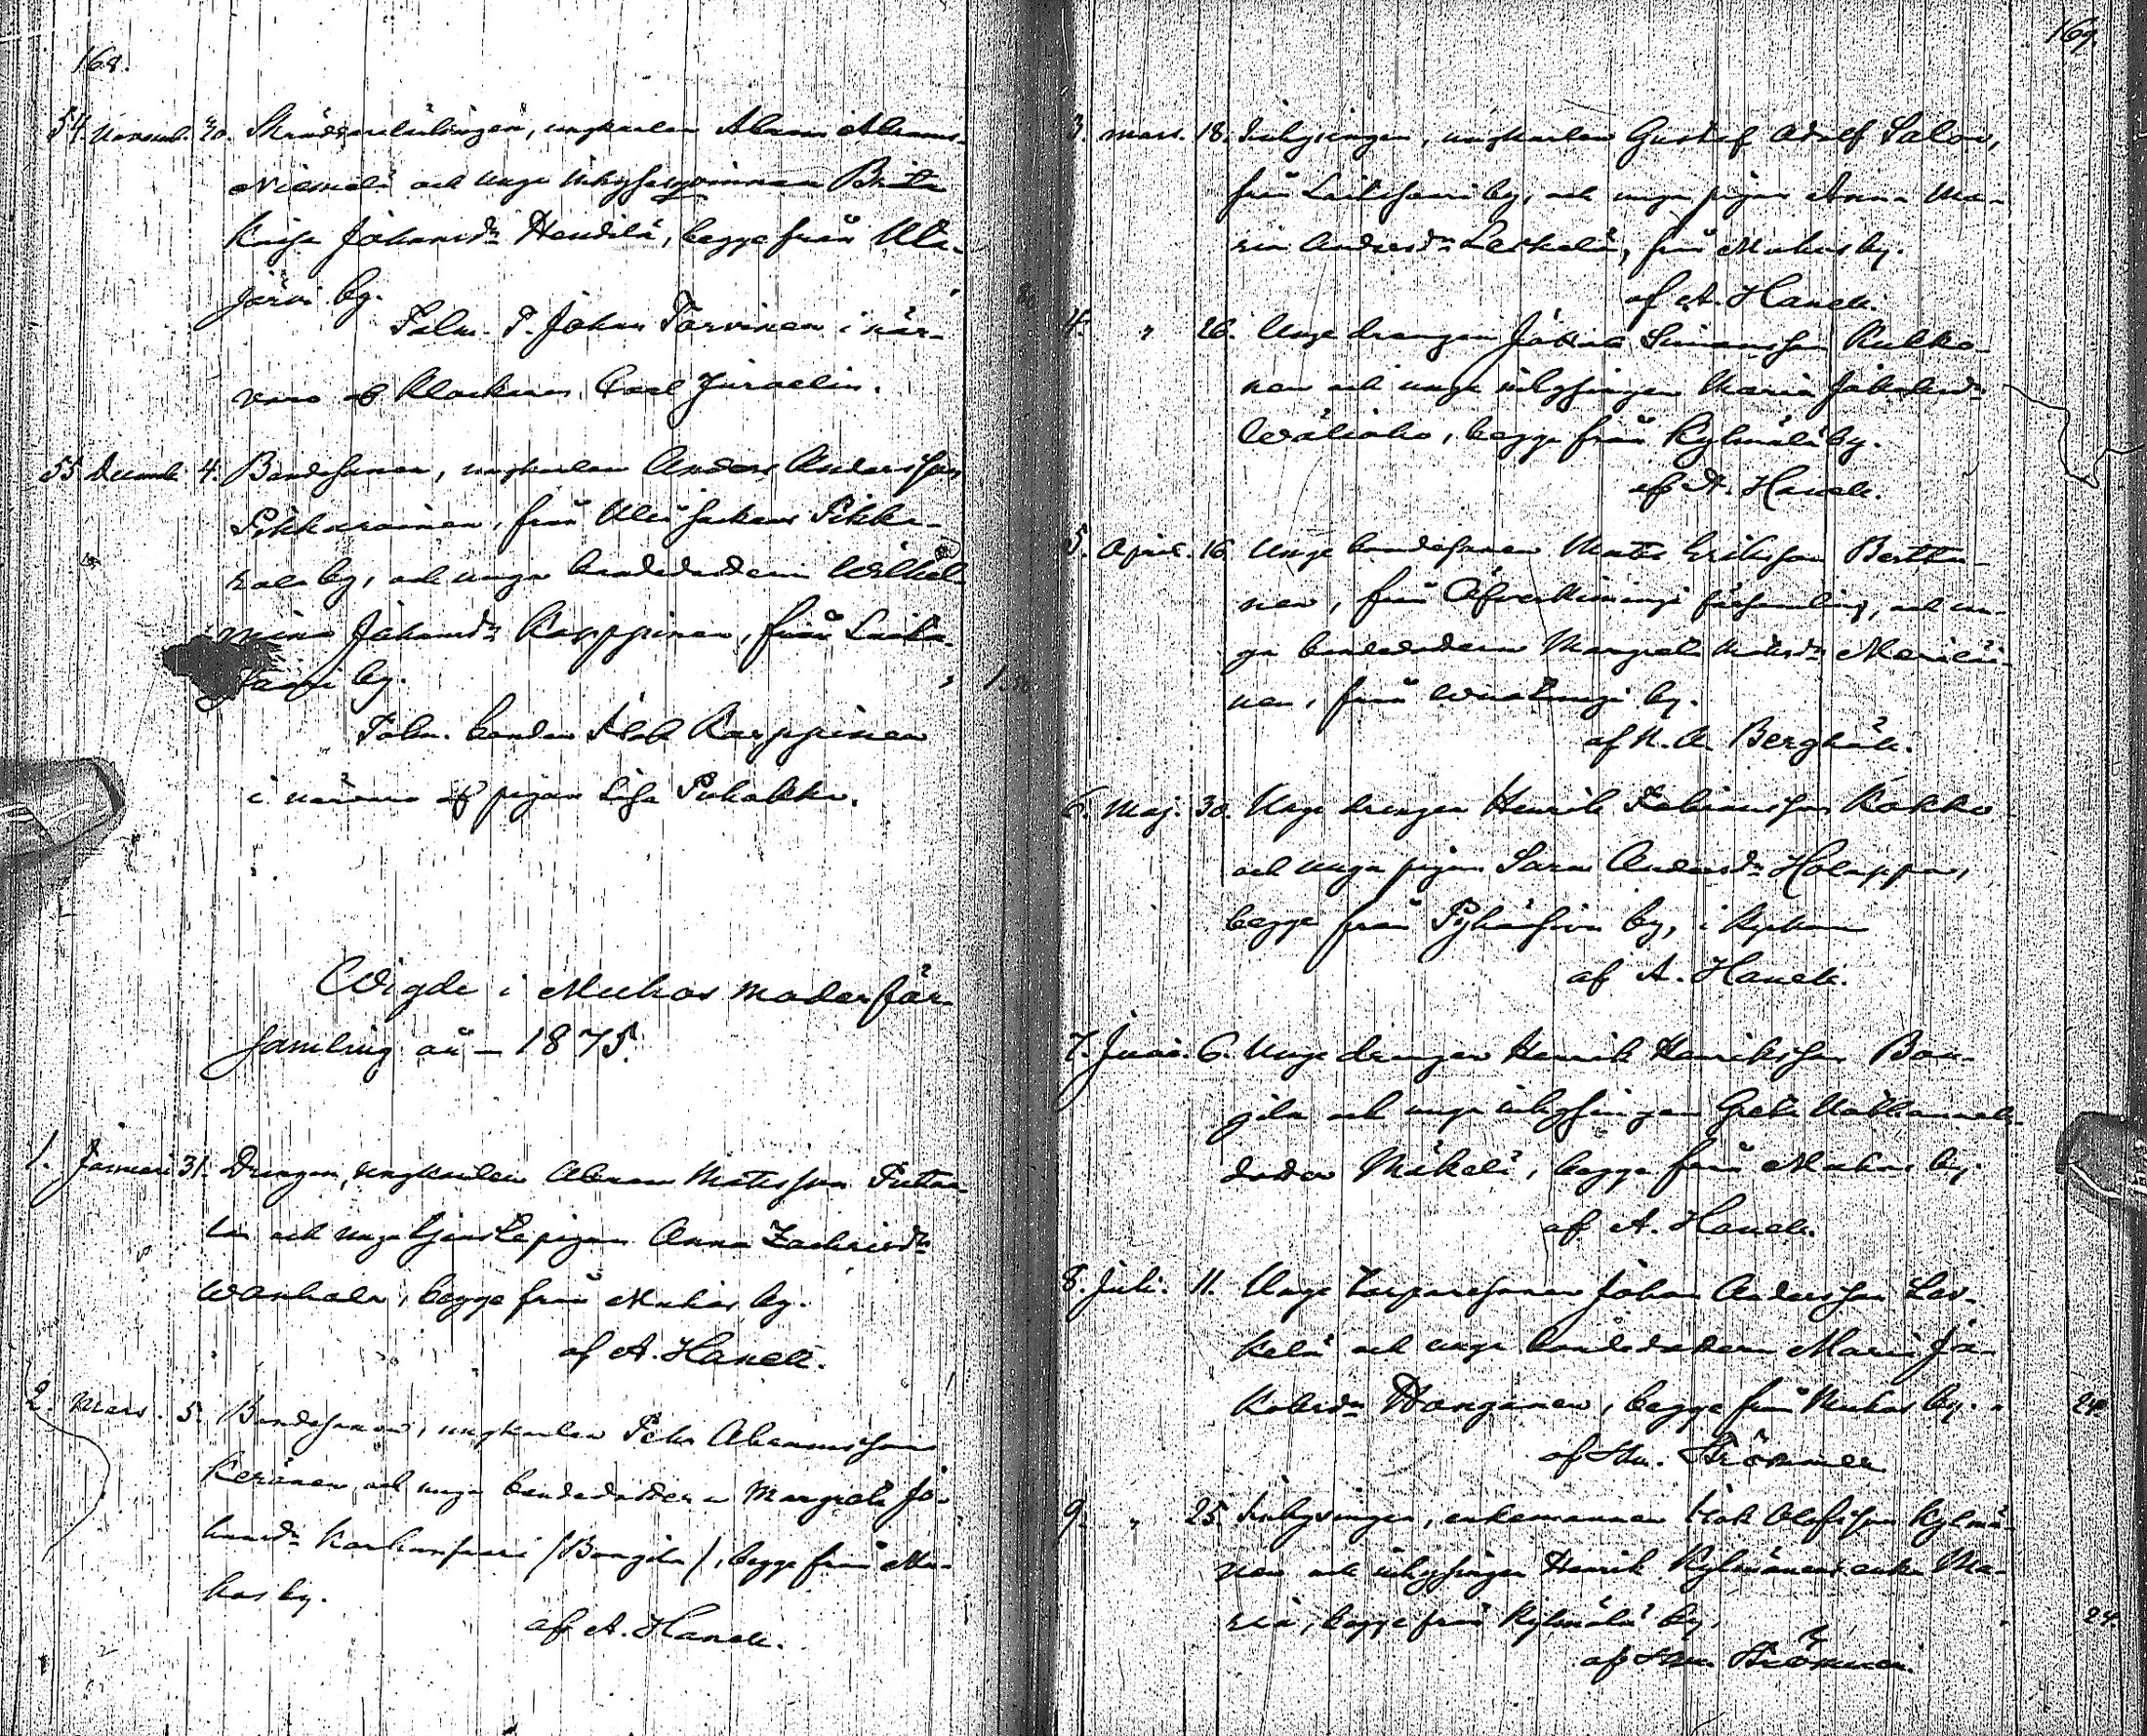 168.
54. Novemb. 20. Skräddarelärlingen, ungkarlen Abram Abrams.
Niemelä och unga inhysesqvinnan Brita
Kaisa Johansdr Heikilä, begge från Ula-
järvi by.
Taln. T. Johan Torvinen i när-
varo af Klockaren Carl Juraelin.
55 Decemb. 4. Bondesonen, ungkarlen Anders Andersson
Pikkarainen, från Uleå sockens Pikka-
rala by, och unga bondedottern Wilhel-
mina Johansdr Karppinen, från Laita-
saari by.
1.
Taln. bonden Isak Karppinen
i närvaro af pigan Lisa Puhakka.
Wigde i Muhos moderför-
samling år - 1875.
1. Januari 31. Drengen, ungkarlen Abram Matsson Putta-
la och unga tjenstepigan Anna Zachrisdr
Wanhala, begge från Muhos by.
af A. Hanell.
2. Mars. 5. Bondesonen, ungkarlen Petter Abramsson
Keränen, och unga bondedottern Margreta Jo-
hansdr Karhunsaari (Bongila), begge från Mu-
hos by.
af A. Hanell.
169.
3. Mars. 18. Inhysingen, ungkarlen Gustaf Adolf Salon,
från Laitasaari by, och unga pigan Anna Ma-
ria Andersdr Leskelä, från Muhos by.
af A. Hanell.
4. " 26. Unge drengen Johan Simonsson Kukko-
nen och unga inhysingen Maria Jakobsdr
Wäliaho, begge från Kylmälä by.
af A. Hanell.
5. April. 16. Unge bondesonen Mats Eriksson Bertth-
nen, från Öfverkiiminge församling, och un-
ga bondedottern Margreta Matsdr Meriläi-
nen, från by.
af N. A. Berghäll.
6. Maj. 30. Unge drengen Henrik Fabiansson Kokko
och unga pigan Sara Andersdr Holappa,
begge från Pyhänsivu by, i Kyrkan
af A. Hanell.
7. Juni. 6. Unge drengen Henrik Henriksson Bon-
gila och unga inhysingen Greta Nathanaels-
dotter Mäkelä, begge från Muhos by.
af A. Hanell.
8. Juli. 11. Unge torparesonen Johan Andersson Les-
kelä och unga bondedottern Maria Ja-
kobsdr Honganen, begge från Muhos by. " 24.
af Strömmer
9. " 25. Inhysingen, enkemannen Isak Olofsson Kylmä-
nen och inhysingen Henrik Kylmänens enka Ma-
ria, begge från Kylmälä by. " 24.
af Strömmer.